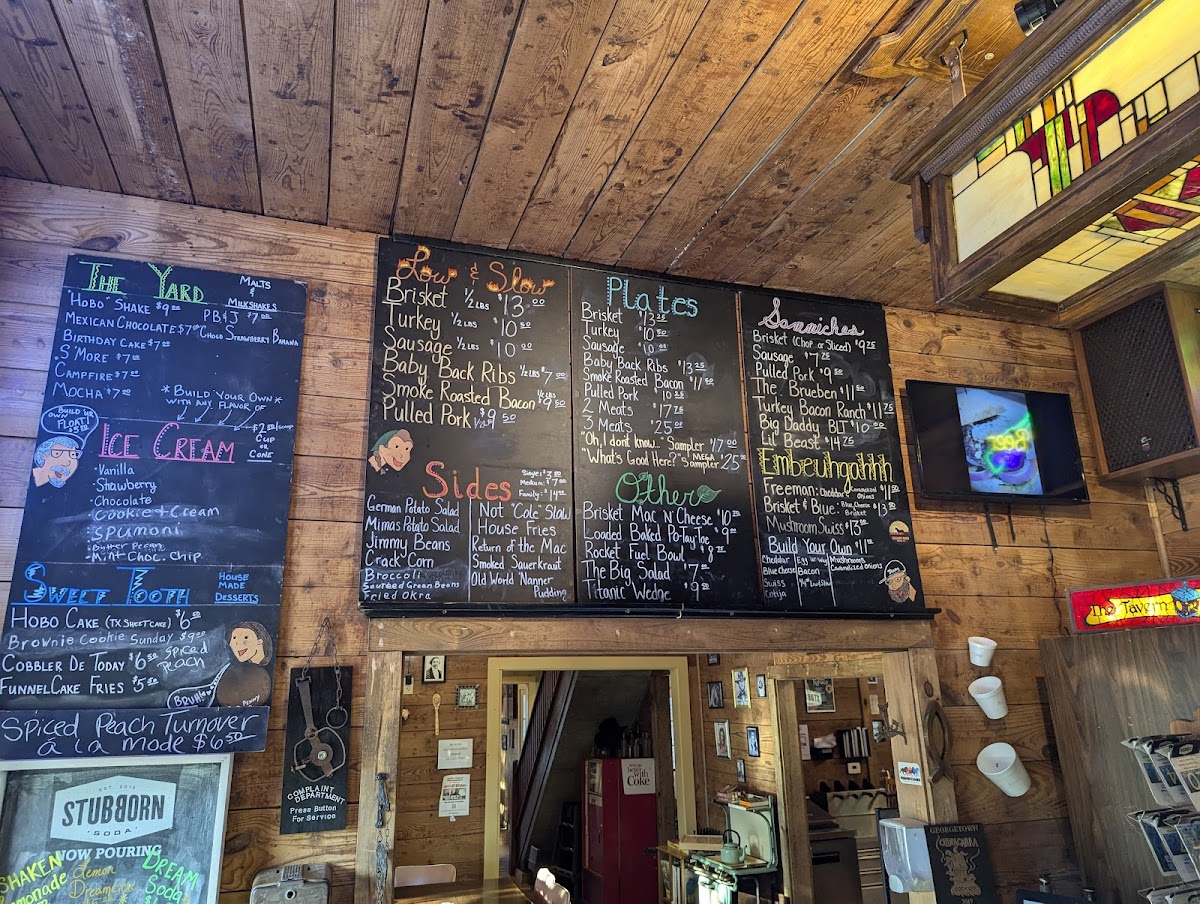 The Yard
Malts
&
Milkshakes
"Hobo" Shake $9.00
PB&J $7.00
Mexican Chocolate $7.00
Choco Strawberry Banana
Birthday Cake $7.00
S'more $7.00
Campfire $7.00
Mocha $7.00
*Build Your Own*
with any flavor of
Build yr
own
Float!
Ice Cream
Cup
or
Cone
·Vanilla
·Strawberry
·Chocolate
·Cookie + Cream
·Spumoni
·Butter Pecan
·Mint Choc. Chip
Sweet Tooth
House
Made
Desserts
Hobo Cake (TX Sheet Cake) $6.50
Brownie Cookie Sunday $9.00
Cobbler De Today $6.50
Spiced
Peach
Funnel Cake Fries $5.50
Bruh!
Spiced Peach Turnover
à la mode $6.50
Low & Slow
Brisket 1/2 lbs $13.00
Turkey 1/2 lbs $10.50
Sausage 1/2 lbs $10.00
Baby Back Ribs 1/2 lbs $7.00
Smoke Roasted Bacon 1/2 lbs $9.50
Pulled Pork 1/2 lbs $9.50
Sides
Single: $3.50
Medium: $7.00
Family: $14.00
German Potato Salad
Mimas Potato Salad
Jimmy Beans
Crack Corn
Broccoli
Sauteed Green Beans
Fried Okra
Not "Cole" Slaw
House Fries
Return of the Mac
Smoked Sauerkraut
Old World Nanner
Pudding
Plates
Brisket $13.25
Turkey $10.50
Sausage $10.00
Baby Back Ribs $13.25
Smoke Roasted Bacon $11.50
Pulled Pork $10.50
2 Meats $17.75
3 Meats $25.00
"Oh, I dont know..." Sampler $17.00
"What's Good Here?" Mega Sampler $25.00
Other
Brisket Mac N' Cheese $10.25
Loaded Baked Po-Tay-Toe $9.00
Rocket Fuel Bowl $8.75
The Big Salad $7
Titanic Wedge $9.00
Sammiches
Brisket (Chop or Sliced) $9.75
Sausage $7.75
Pulled Pork $9.50
The Brueben $11.50
Turkey Bacon Ranch $11.75
Big Daddy BLT $10.00
Lil' Beast $14.75
Embeuhgahhh
Freeman: Cheddar & Caramelized Onions $11.50
Brisket & Blue: Blue Cheese Brisket $13.50
Mushroom Swiss $13.00
Build Your Own $11.00
Cheddar
Blue Cheese
Swiss
Cotija
Egg
Bacon
Mushrooms
Caramelized Onions
The Tavern
Complaint
Department
Press Button
For Service
with
Coke
Est. 2015
STUBBORN
·SODA·
NOW POURING
Shaken
Lemonade
Lemon
Dream
Soda
Georgetown
Chupacabra